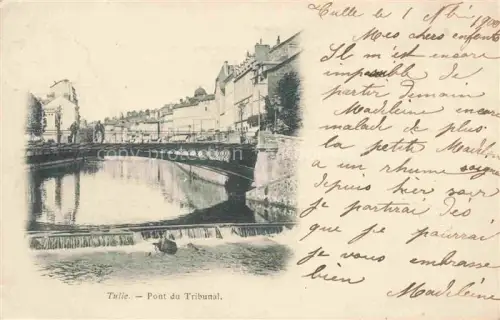 Tulle le 1 Nbre 1900
Mes chers enfants
Il m'est encore
impossible de
partir Demain
Madeleine encore
malade de plus
la petite
a un rhume soigné
depuis hier soir
je partirai dès
que je pourrai
je vous embrasse
bien
Madeleine
Tulle. — Pont du Tribunal.